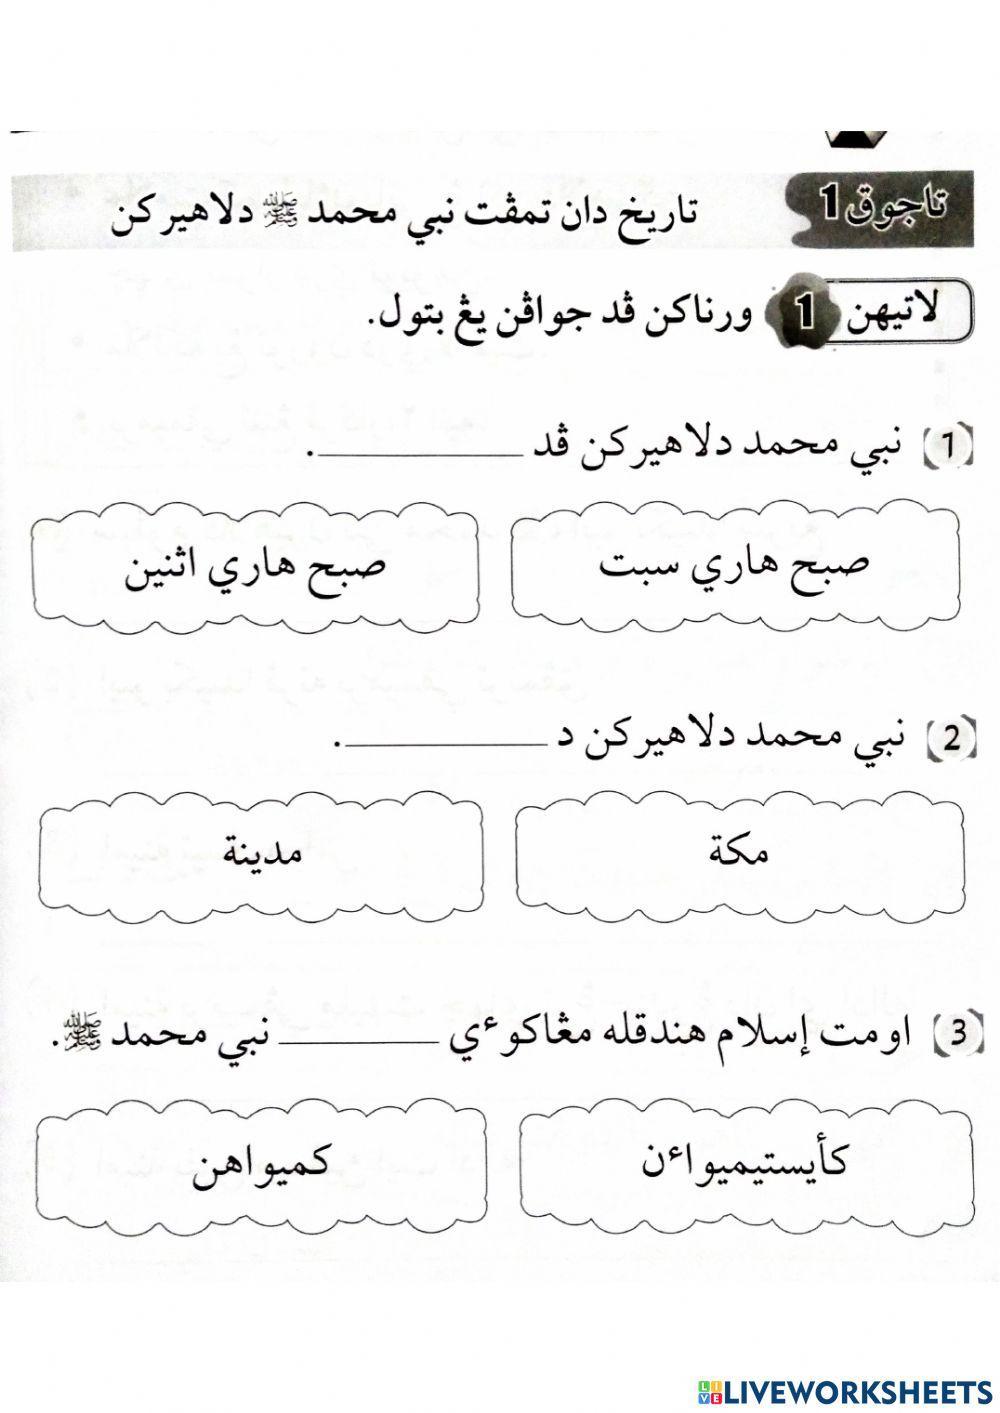 تاجوق 1 تاريخ دان تمڤت نبي محمد ﷺ دلاهيركن
لاتيهن 1 ورناكن ڤد جواڤن يڠ بتول.
1 نبي محمد دلاهيركن ڤد ________.
صبح هاري سبت
صبح هاري اثنين
2 نبي محمد دلاهيركن د ________.
مكة
مدينة
3 اومت إسلام هندقله مڠاكوءي ________ نبي محمد ﷺ.
كأيستيميواءن
كميواهن
LIVEWORKSHEETS